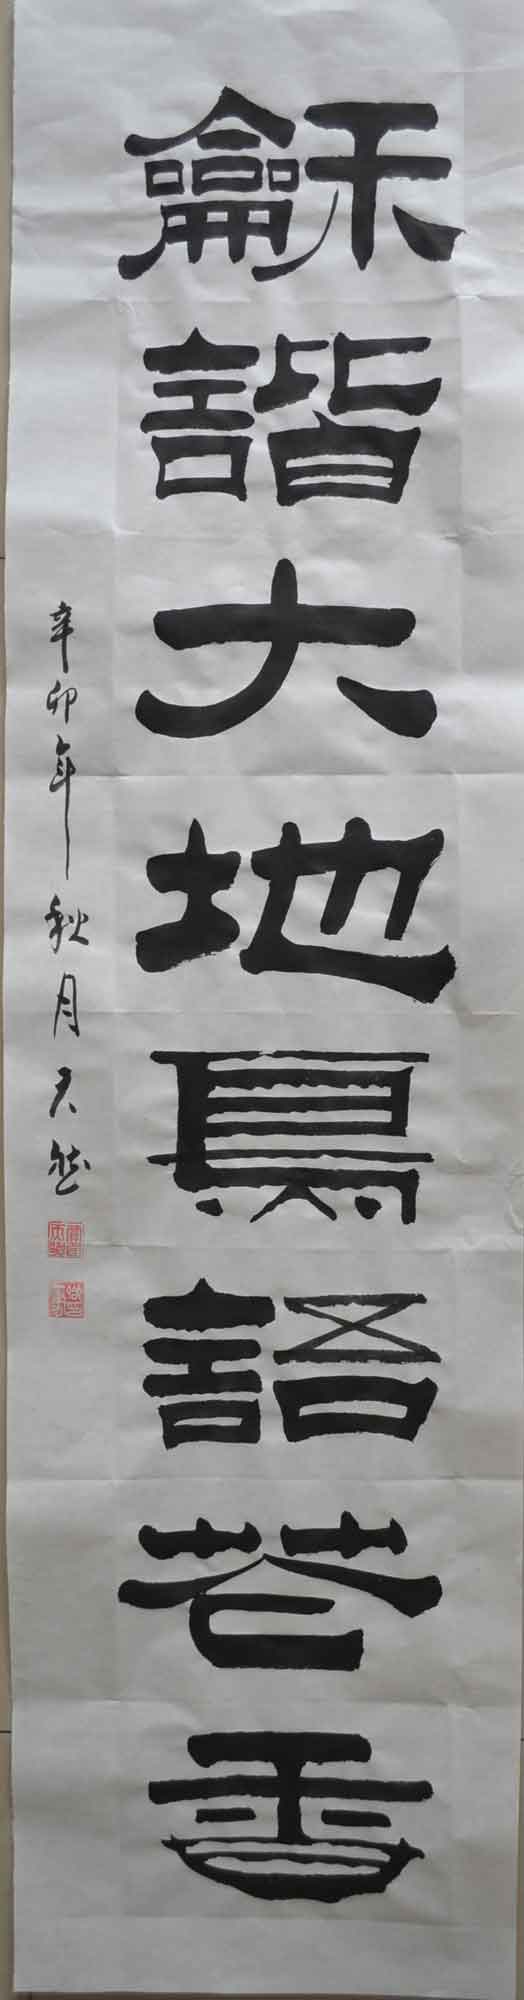 龢諧大地鳥語花香
辛卯年秋月